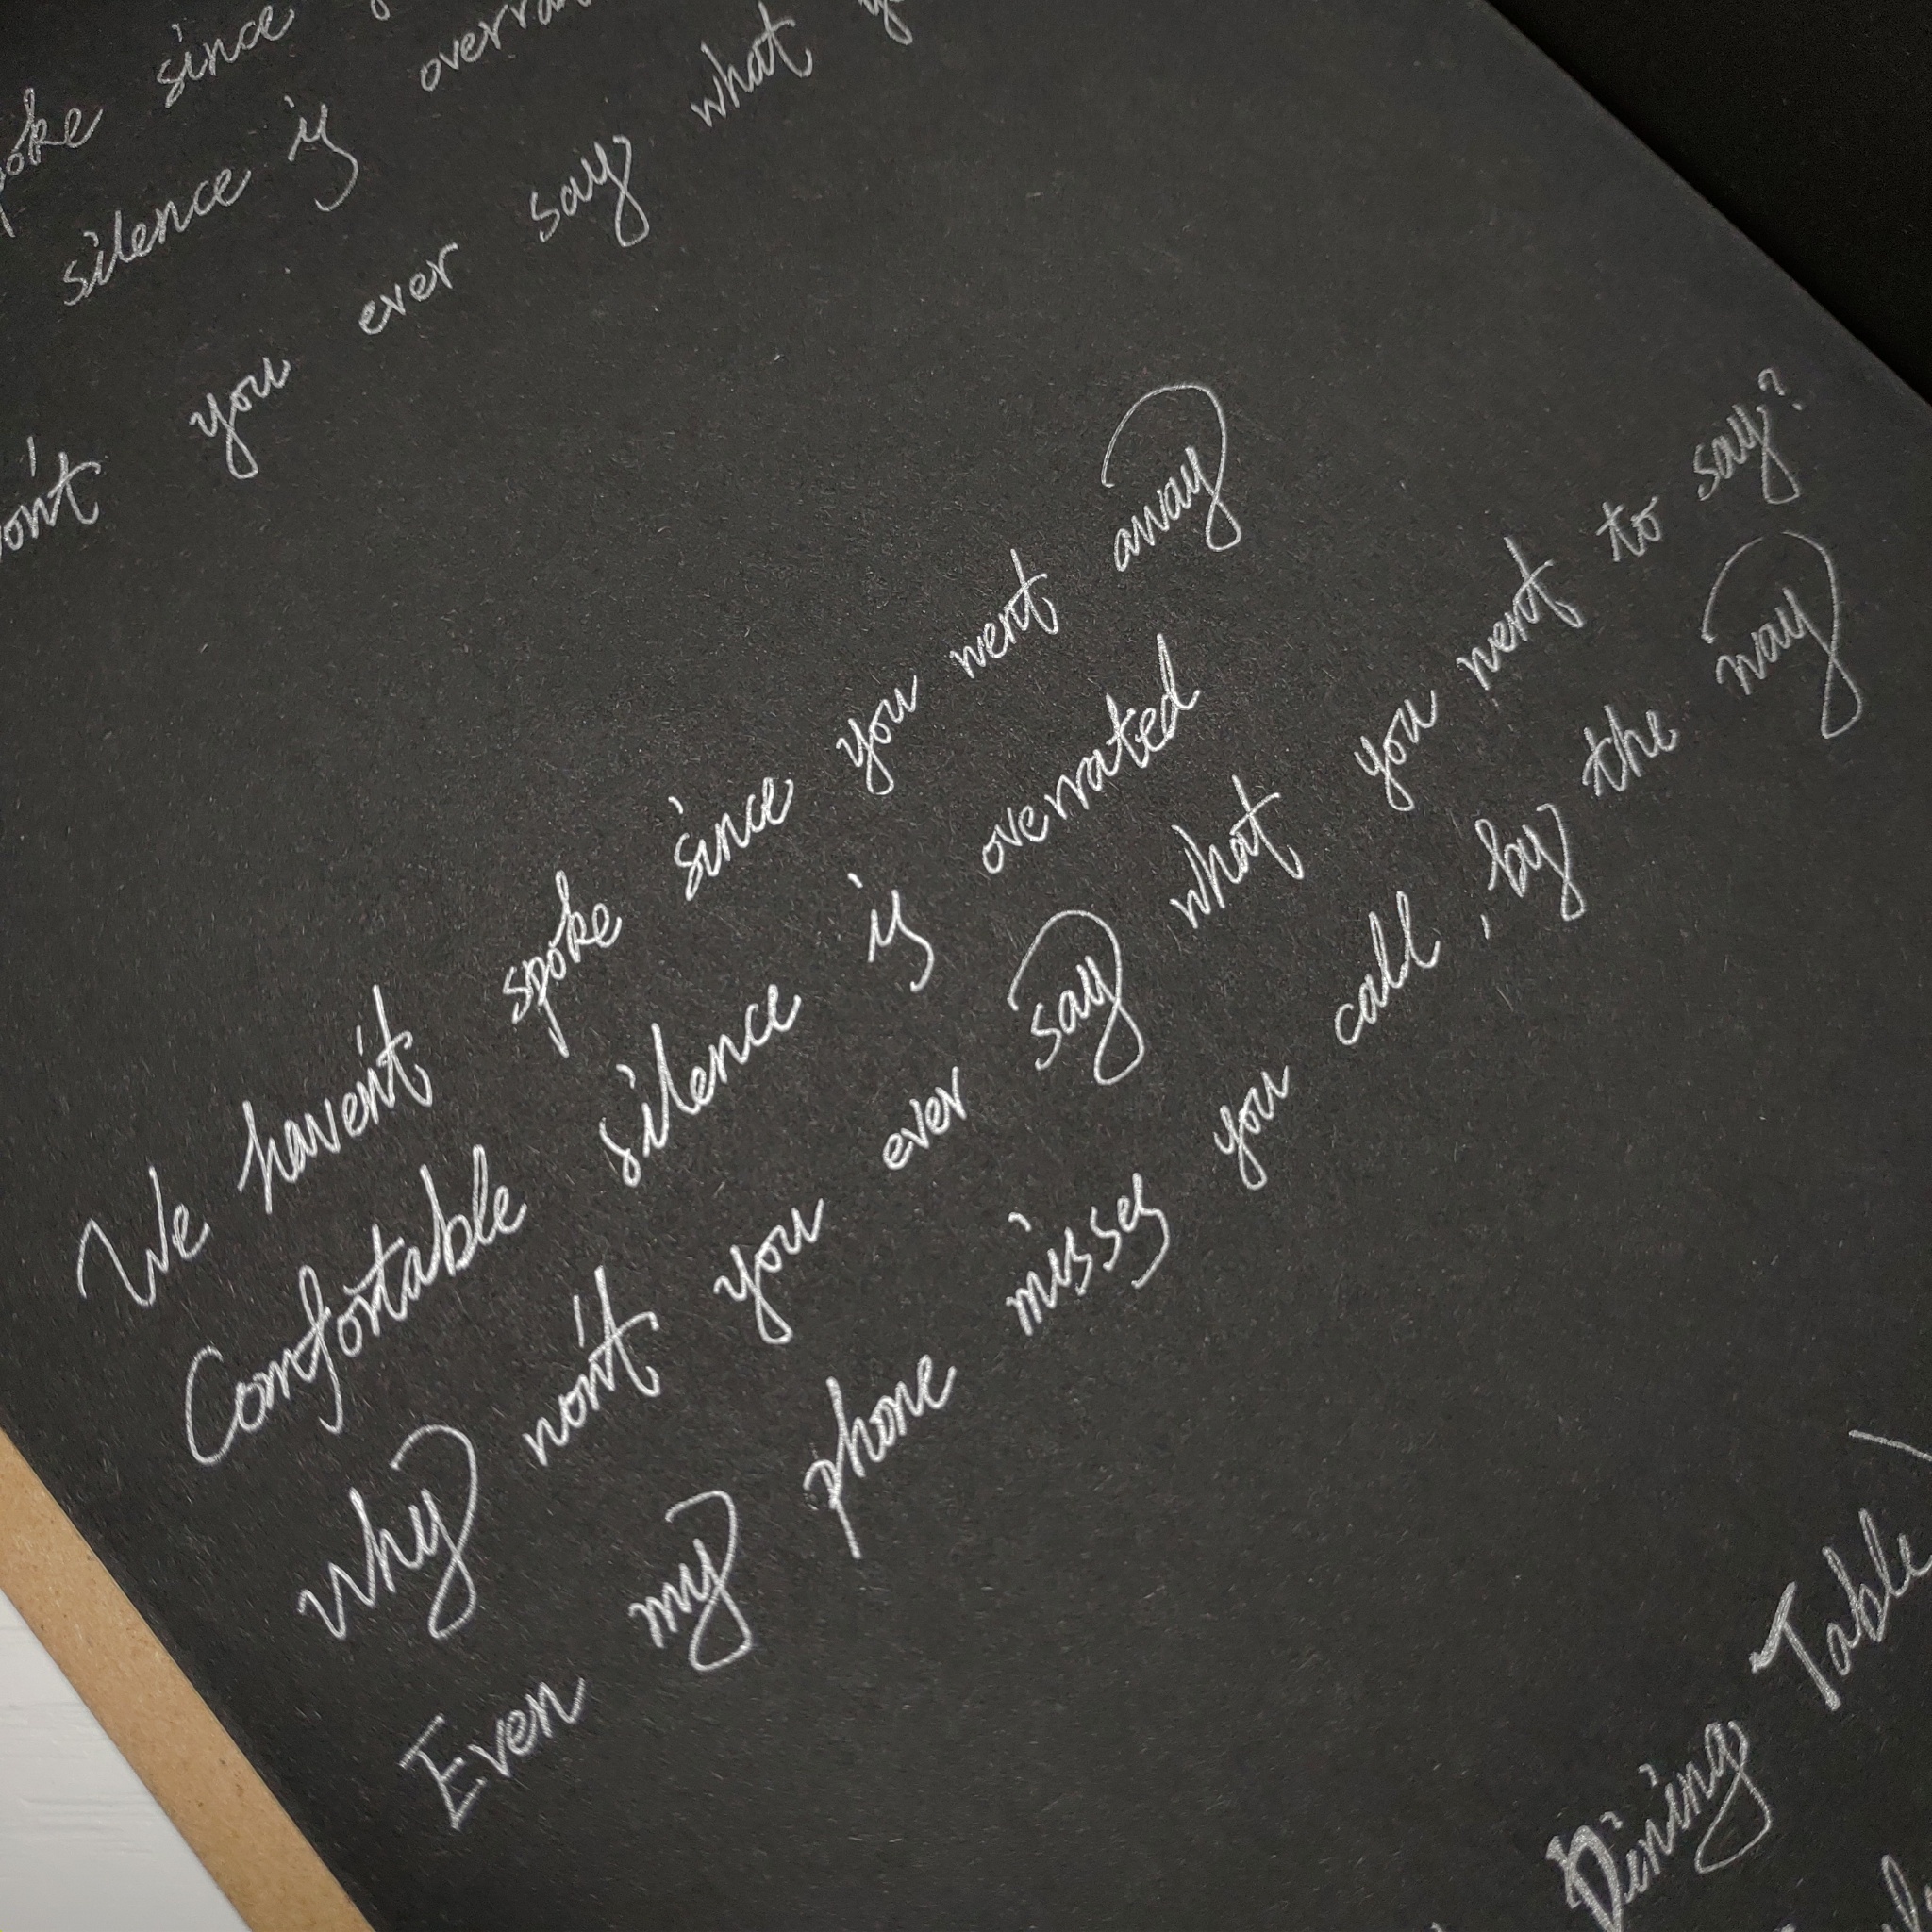 spoke since
silence is
you ever say what
We haven't spoke since you went away
Comfortable silence is overrated
Why won't you ever say what you went to say?
Even my phone misses you call, by the way
Dining Table